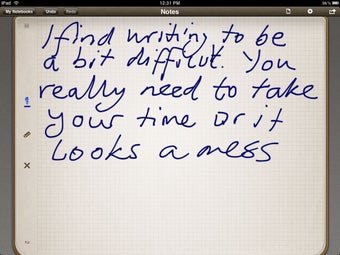 iPad
12:31 PM
96%
My Notebooks Undo Redo Notes
I find writing to be
a bit difficult. You
really need to take
your time or it
looks a mess